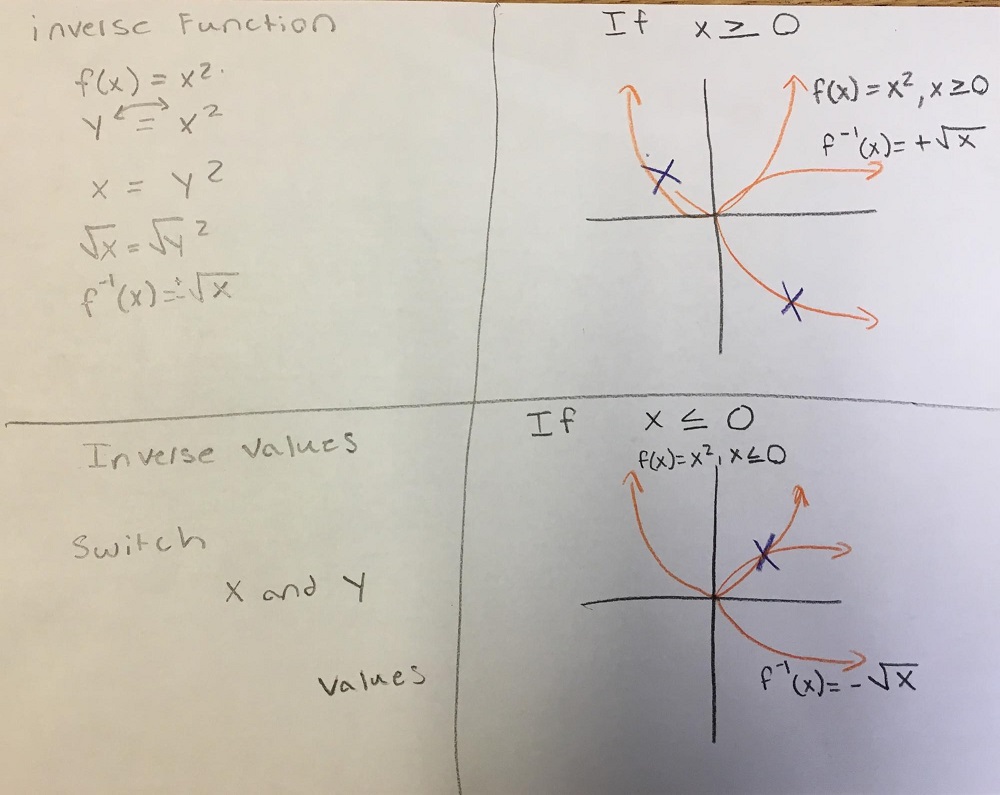 inverse Function
f(x) = x²
y = x²
x = y²
√x = √y²
f⁻¹(x) = ±√x
If x ≥ 0
f(x) = x², x ≥ 0
f⁻¹(x) = +√x
Inverse values
Switch
x and y
values
If x ≤ 0
f(x) = x², x ≤ 0
f⁻¹(x) = -√x